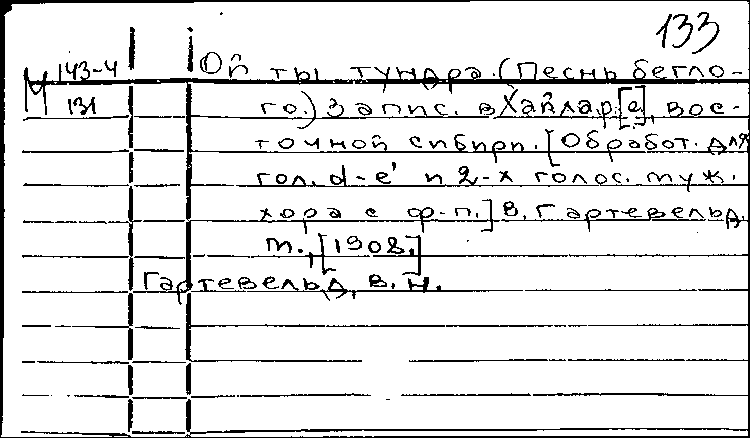 133
М 143-4
131
Ой ты тундра. (Песнь бегло-
го.) Запис. в Хайлар[е], вос-
точной сибири. [Обработ. для
гол. d-e' и 2-х голос. муж.
хора с ф-п.] В. Гартевельд.
m., [1908.]
Гартевельд, В. Н.